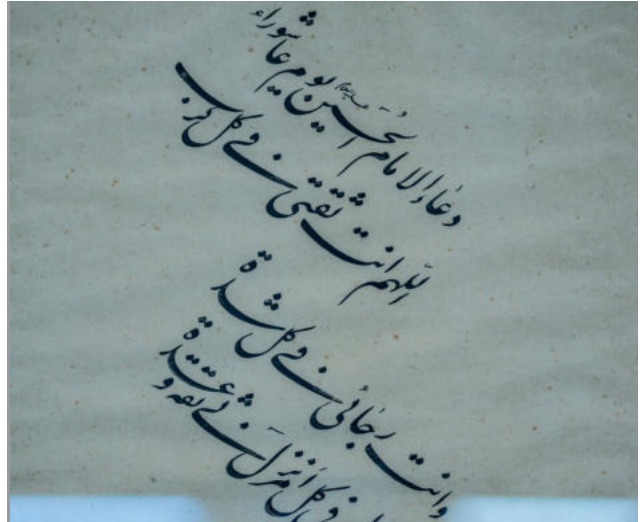 دعاء الامام الحسین یوم عاشوراء
اللهم انت ثقتی فی کل کرب
وانت رجائی فی کل شدة
فی کل امر نزل بی ثقه و عدة